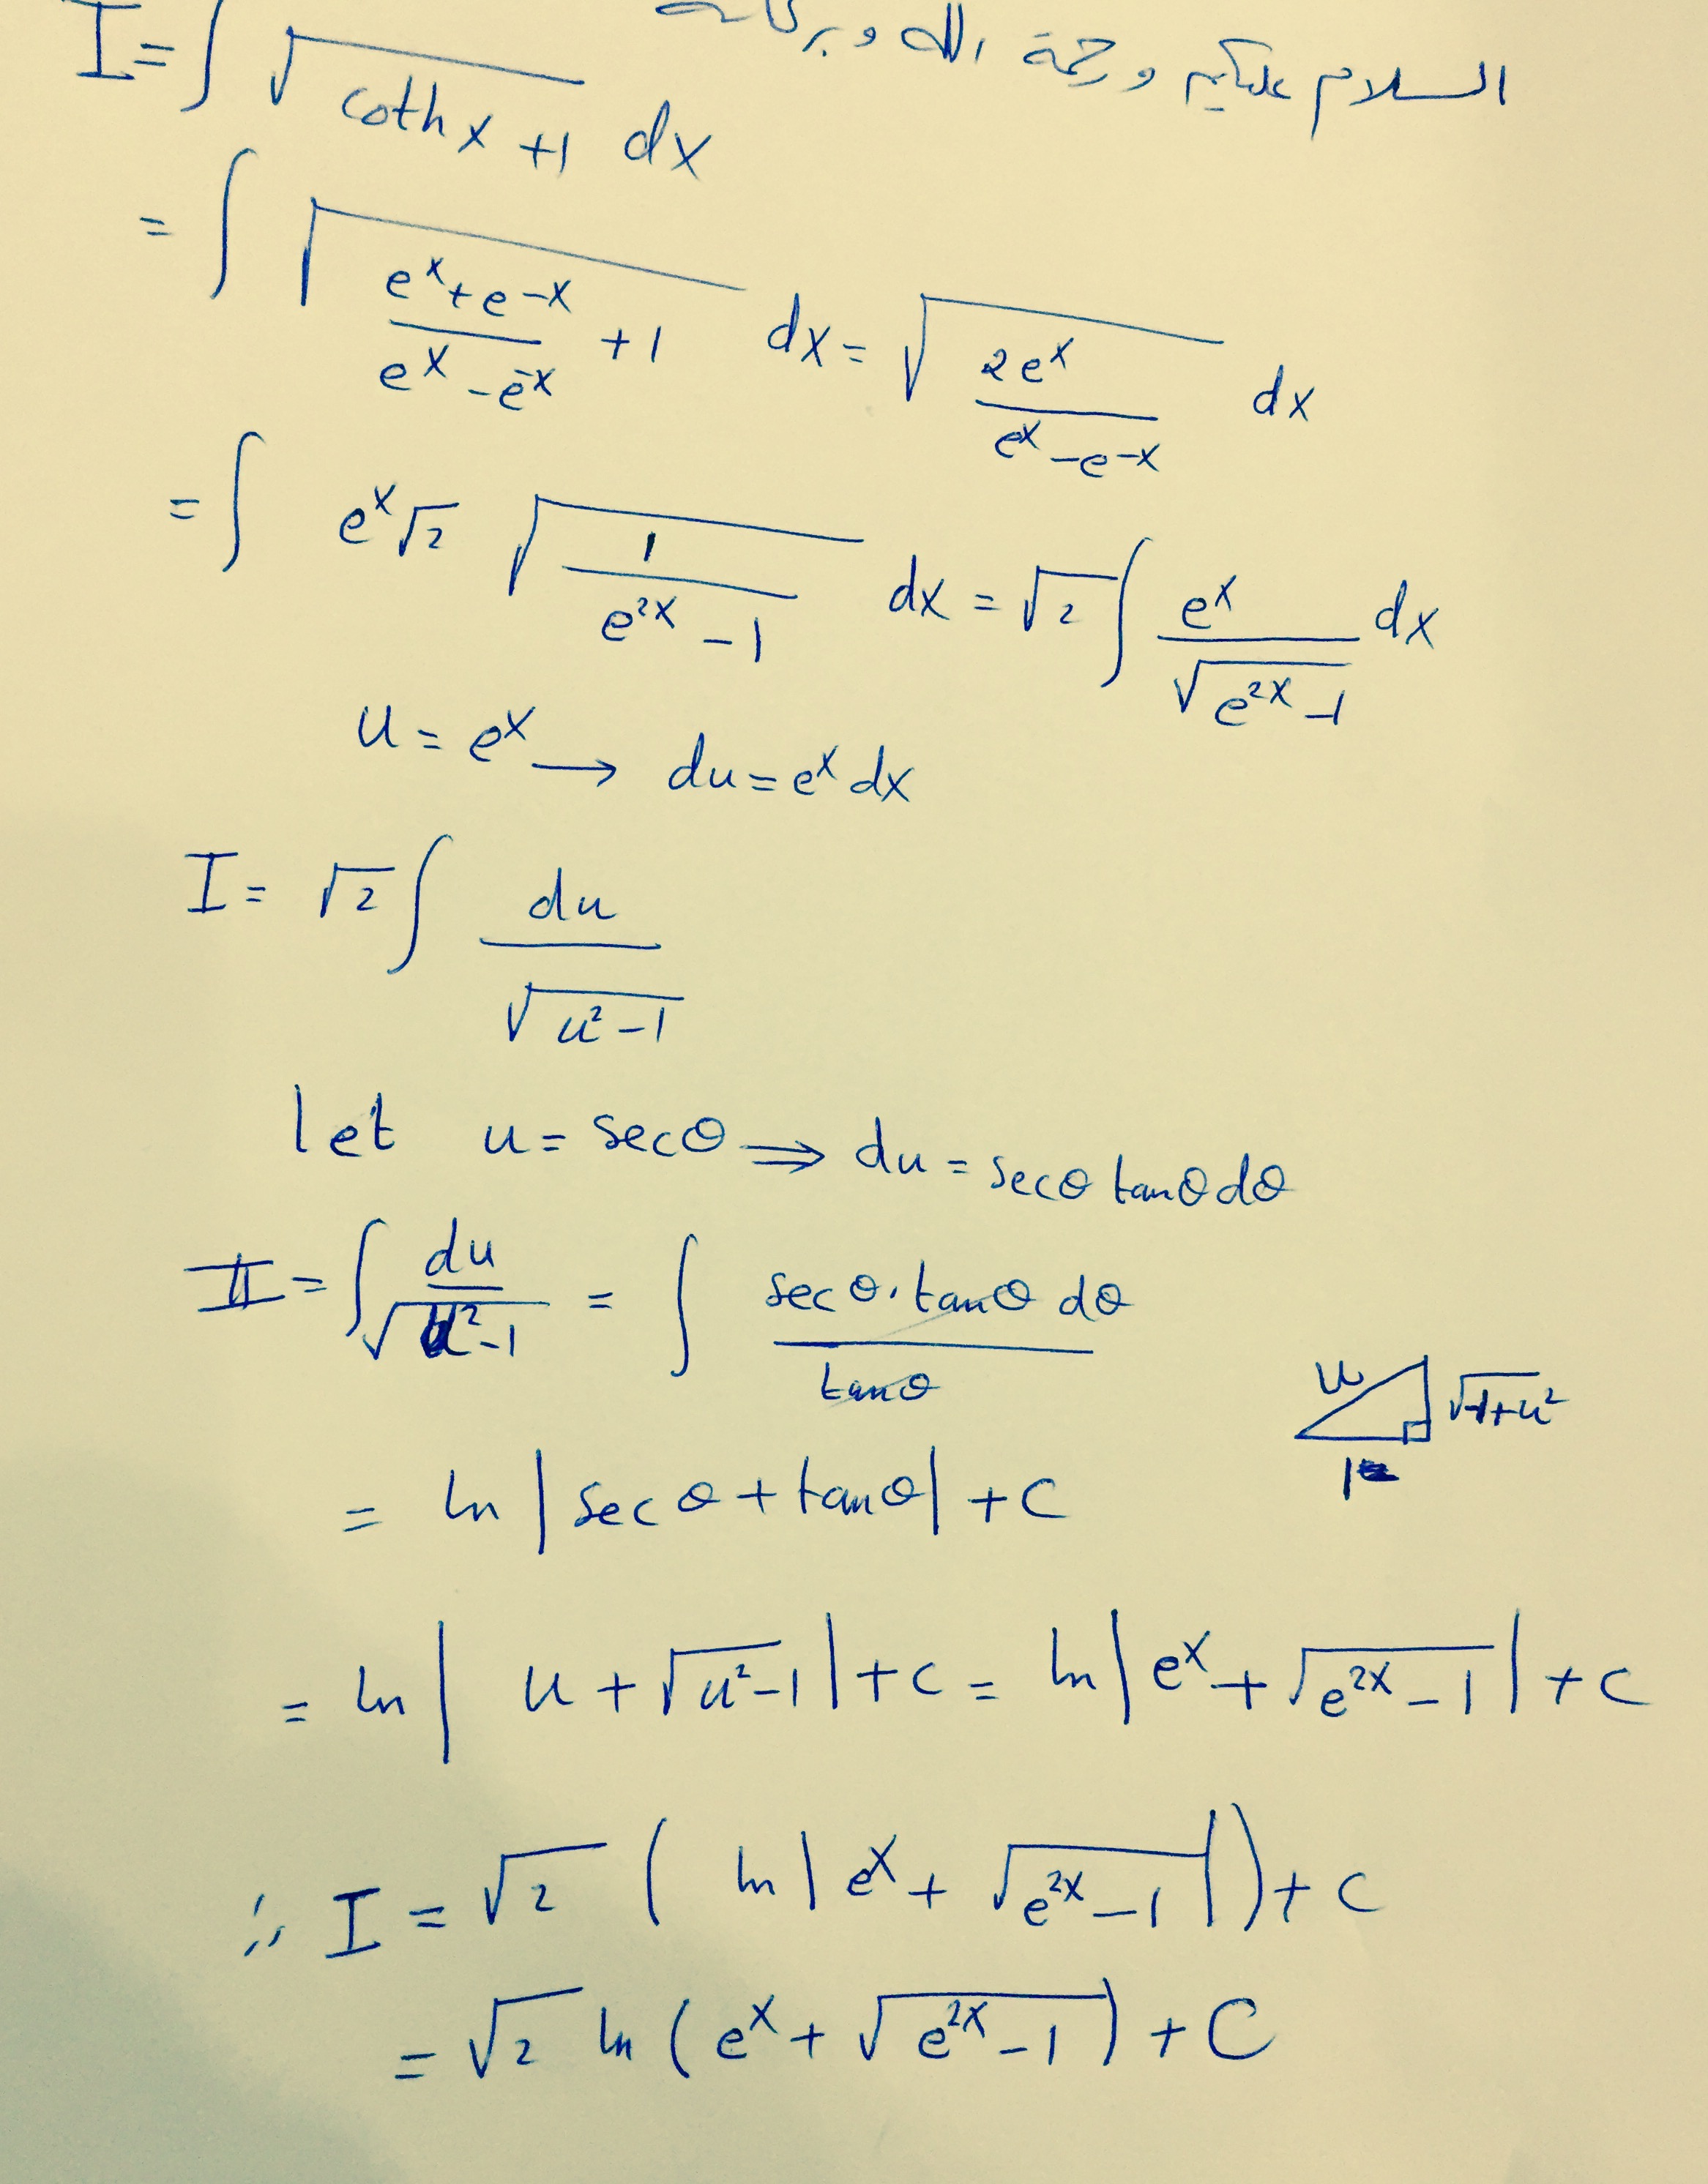 السلام عليكم ورحمة الله وبركاته
I = ∫ √(coth x + 1) dx
= ∫ √((e^x + e^-x)/(e^x - e^-x) + 1) dx = √(2e^x/(e^x - e^-x)) dx
= ∫ e^x √2 √(1/(e^2x - 1)) dx = √2 ∫ e^x/√(e^2x - 1) dx
u = e^x → du = e^x dx
I = √2 ∫ du/√(u² - 1)
let u = secθ ⇒ du = secθ tanθ dθ
II = ∫ du/√(u² - 1) = ∫ secθ · tanθ dθ/tanθ
u √(-1+u²)
1
= ln |secθ + tanθ| + C
= ln | u + √(u² - 1) | + C = ln | e^x + √(e^2x - 1) | + C
∴ I = √2 ( ln | e^x + √(e^2x - 1) | ) + C
= √2 ln ( e^x + √(e^2x - 1) ) + C